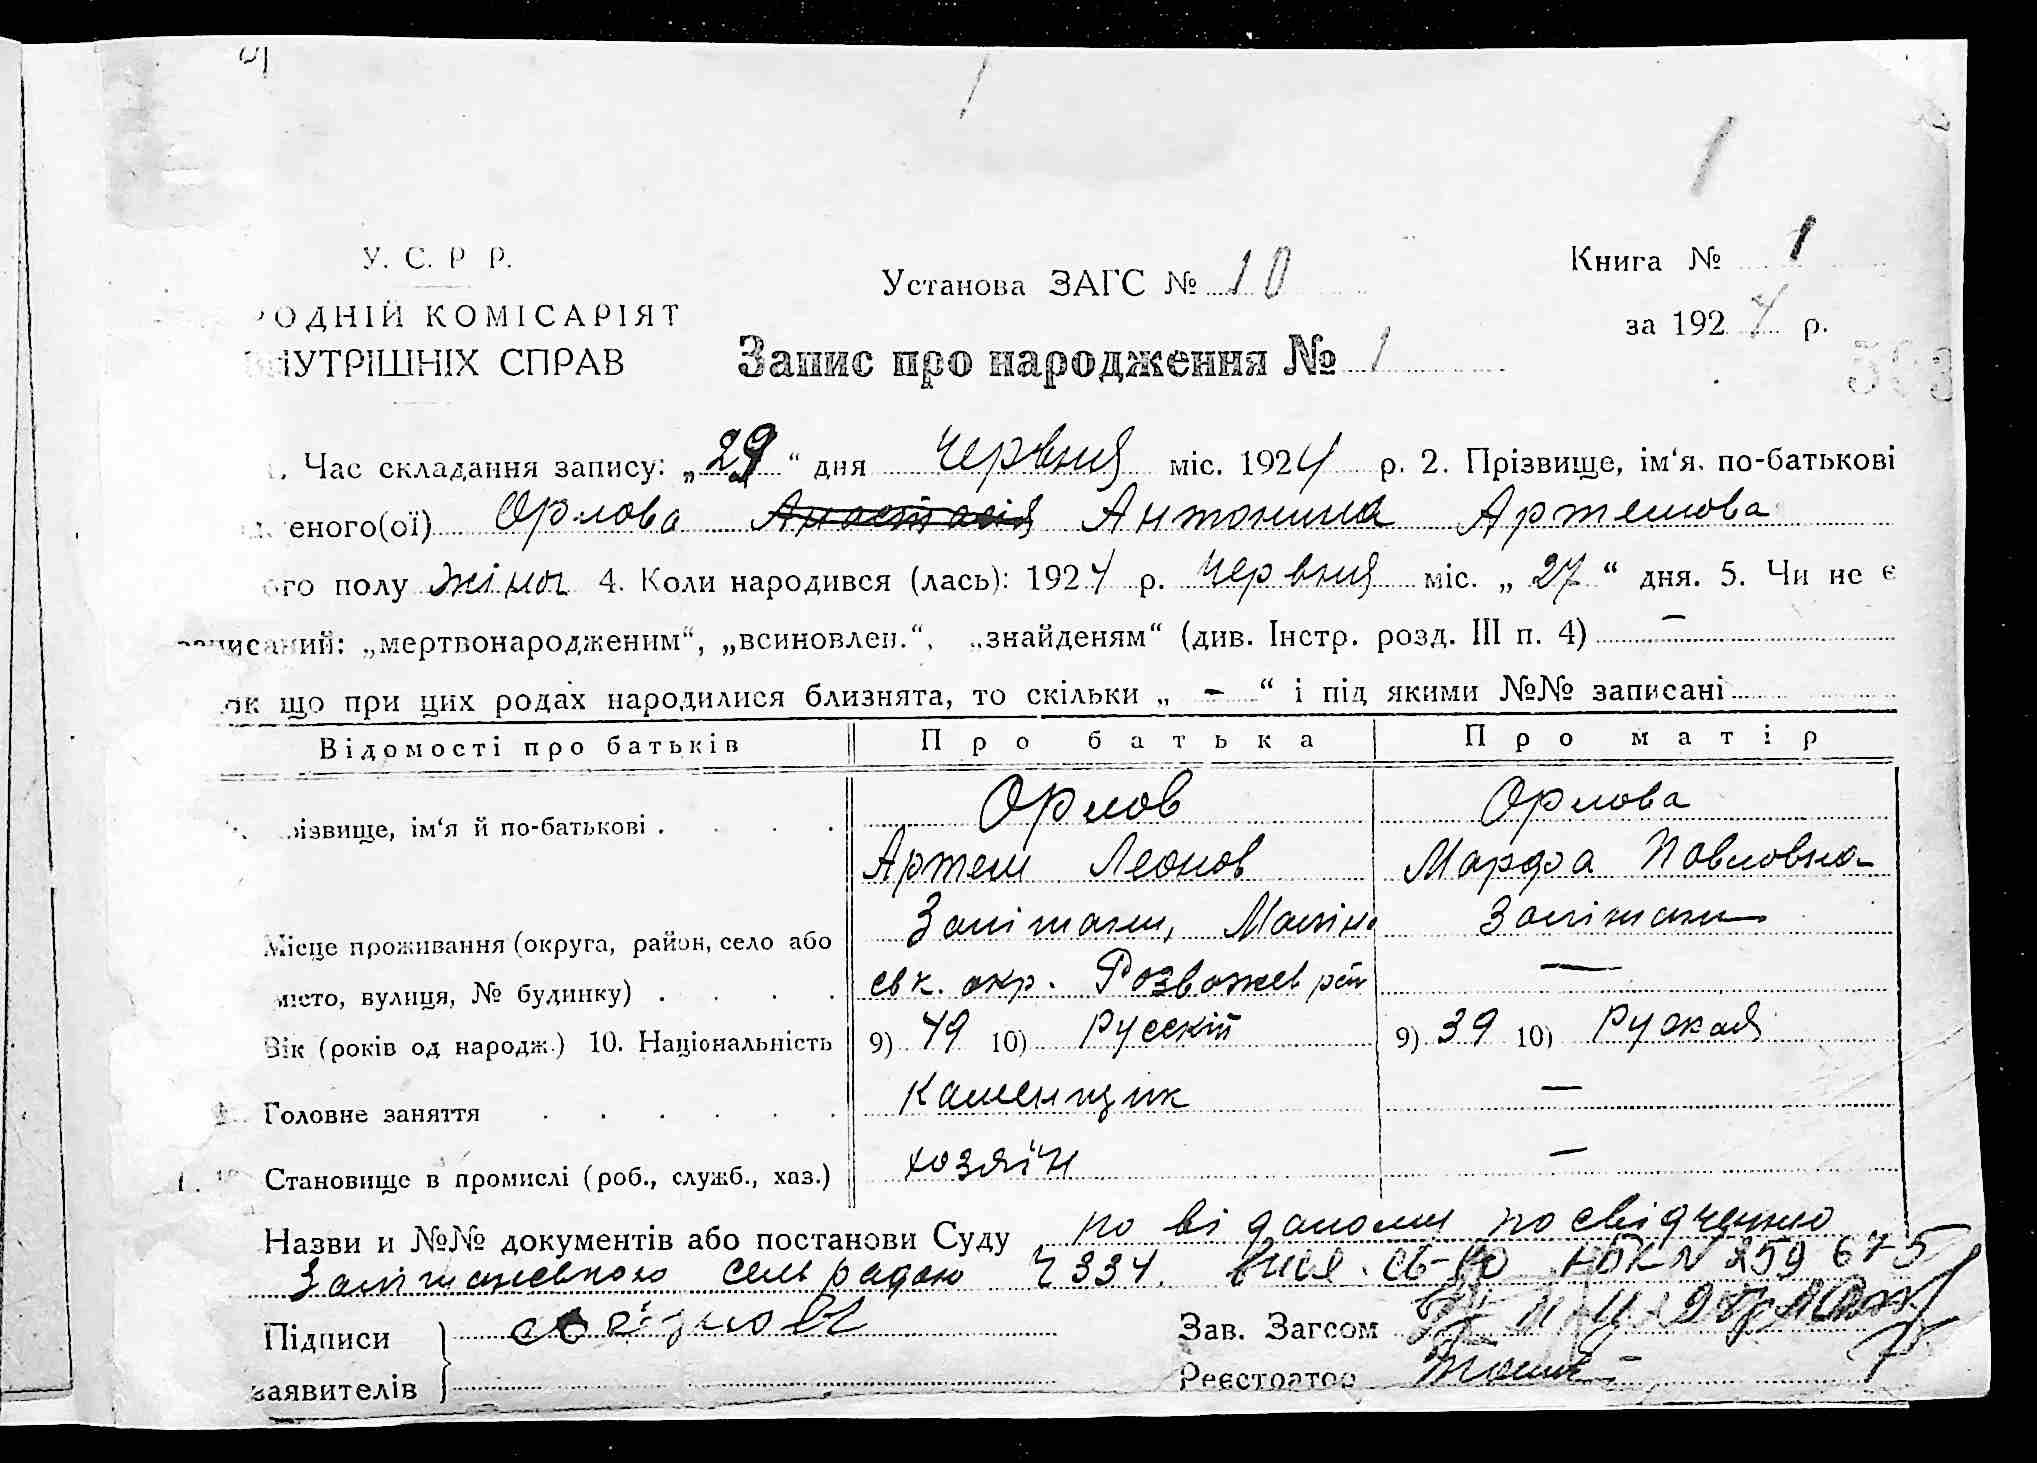 1
1
У. С. Р Р.
Установа ЗАГС № 10
Книга № 1
РОДНІЙ КОМІСАРІЯТ
за 1924 р.
НУТРІШНІХ СПРАВ
Запис про народження № 1
1. Час складання запису: „29“ дня червня міс. 1924 р. 2. Прізвище, ім‘я, по-батькові
еного(ої) Орлова Анастасія Антонина Артемова
ого полу жіноч 4. Коли народився (лась): 1924 р. червня міс. „27“ дня. 5. Чи не є
записаний: „мертвонародженим“, „всиновлен.“, „знайденям“ (див. Інстр. розд. III п. 4) —
як що при цих родах народилися близнята, то скільки „ - “ і під якими №№ записані
Відомості про батьків Про батька Про матір
різвище, ім‘я й по-батькові . . . . Орлов Орлова
Артем Леонов Марфа Павловна
Місце проживання (округа, район, село або
місто, вулиця, № будинку) . . . . свк. окр. Розважев рай —
Вік (років од народж.) 10. Національність 9) 49 10) Русскій 9) 39 10) Руская
Головне заняття . . . . . . Каменщик —
Становище в промислі (роб., служб., хаз.) хозяїн —
Назви и №№ документів або постанови Суду по віданому посвідченню
сельрадою Ч 334. № 259675
Підписи
заявителів
Зав. Загсом
Реєстратор